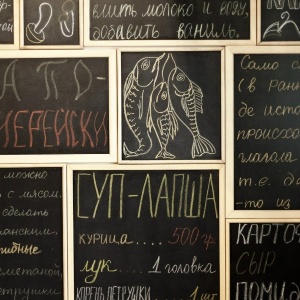 влить молоко и воду,
добавить ваниль.
А ПО-
МЕРЕЙСКИ
Само с
(в ран
де исто
происхо
глагола
т.е. да
-то из
можно
с мясом.
сделать
сметаной,
СУП-ЛАПША
КУРИЦА.... 500 гр.
ЛУК.... 1 головка
КОРЕНЬ ПЕТРУШКИ ... 1 шт
КАРТО
СЫР
ПОМИД